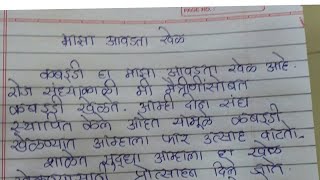 PAGE NO.:
माझा आवडता खेळ
कबड्डी हा माझा आवडता खेळ आहे.
रोज संध्याकाळी मी मैत्रीणींसोबत
कबड्डी खेळते. आम्ही दोन संघ
स्थापित केले आहेत यामुळे कबड्डी
खेळण्यात आम्हाला फार उत्साह वाटतो.
शाळेत सुध्दा आम्हाला हा खेळ
प्रोत्साहन दिले जाते.